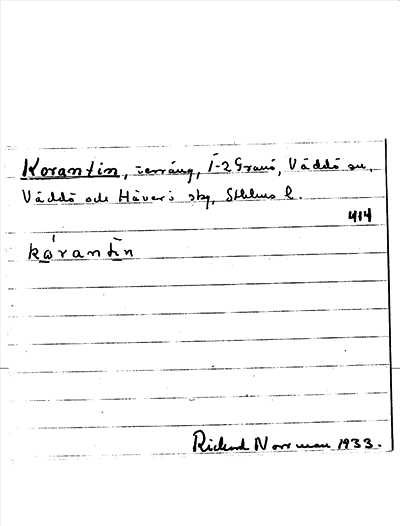 Korantin, terräng, 1-2 Granö, Väddö sn,
Väddö och Häverö skg, Sthlms l.
414
kårantin
Rickard Norrman 1933.